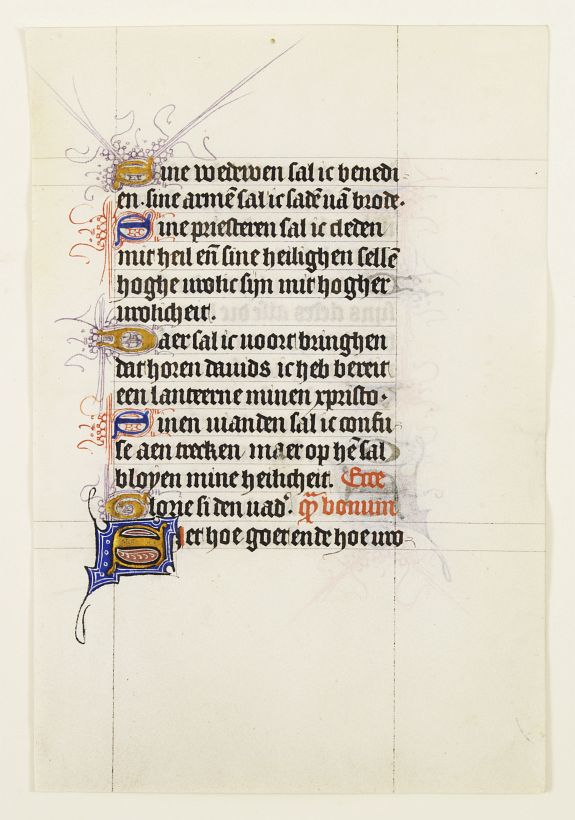 Sine wedewen sal ic benedi
en. sine armē sal ic sadē uā brode.
Sine priesteren sal ic cleden
mit heil eñ sine heilighen sellē
hoghe urolic sijn mit hogher
urolicheit.
Daer sal ic uoort bringhen
dat horen dauids ic heb bereit
een lanteerne minen xpristo.
Sinen uianden sal ic confu
se aen trecken maer op hē sal
bloyen mine heilicheit. Ecce
Glorie si den uad'. quā bonum
Siet hoe goet ende hoe uro